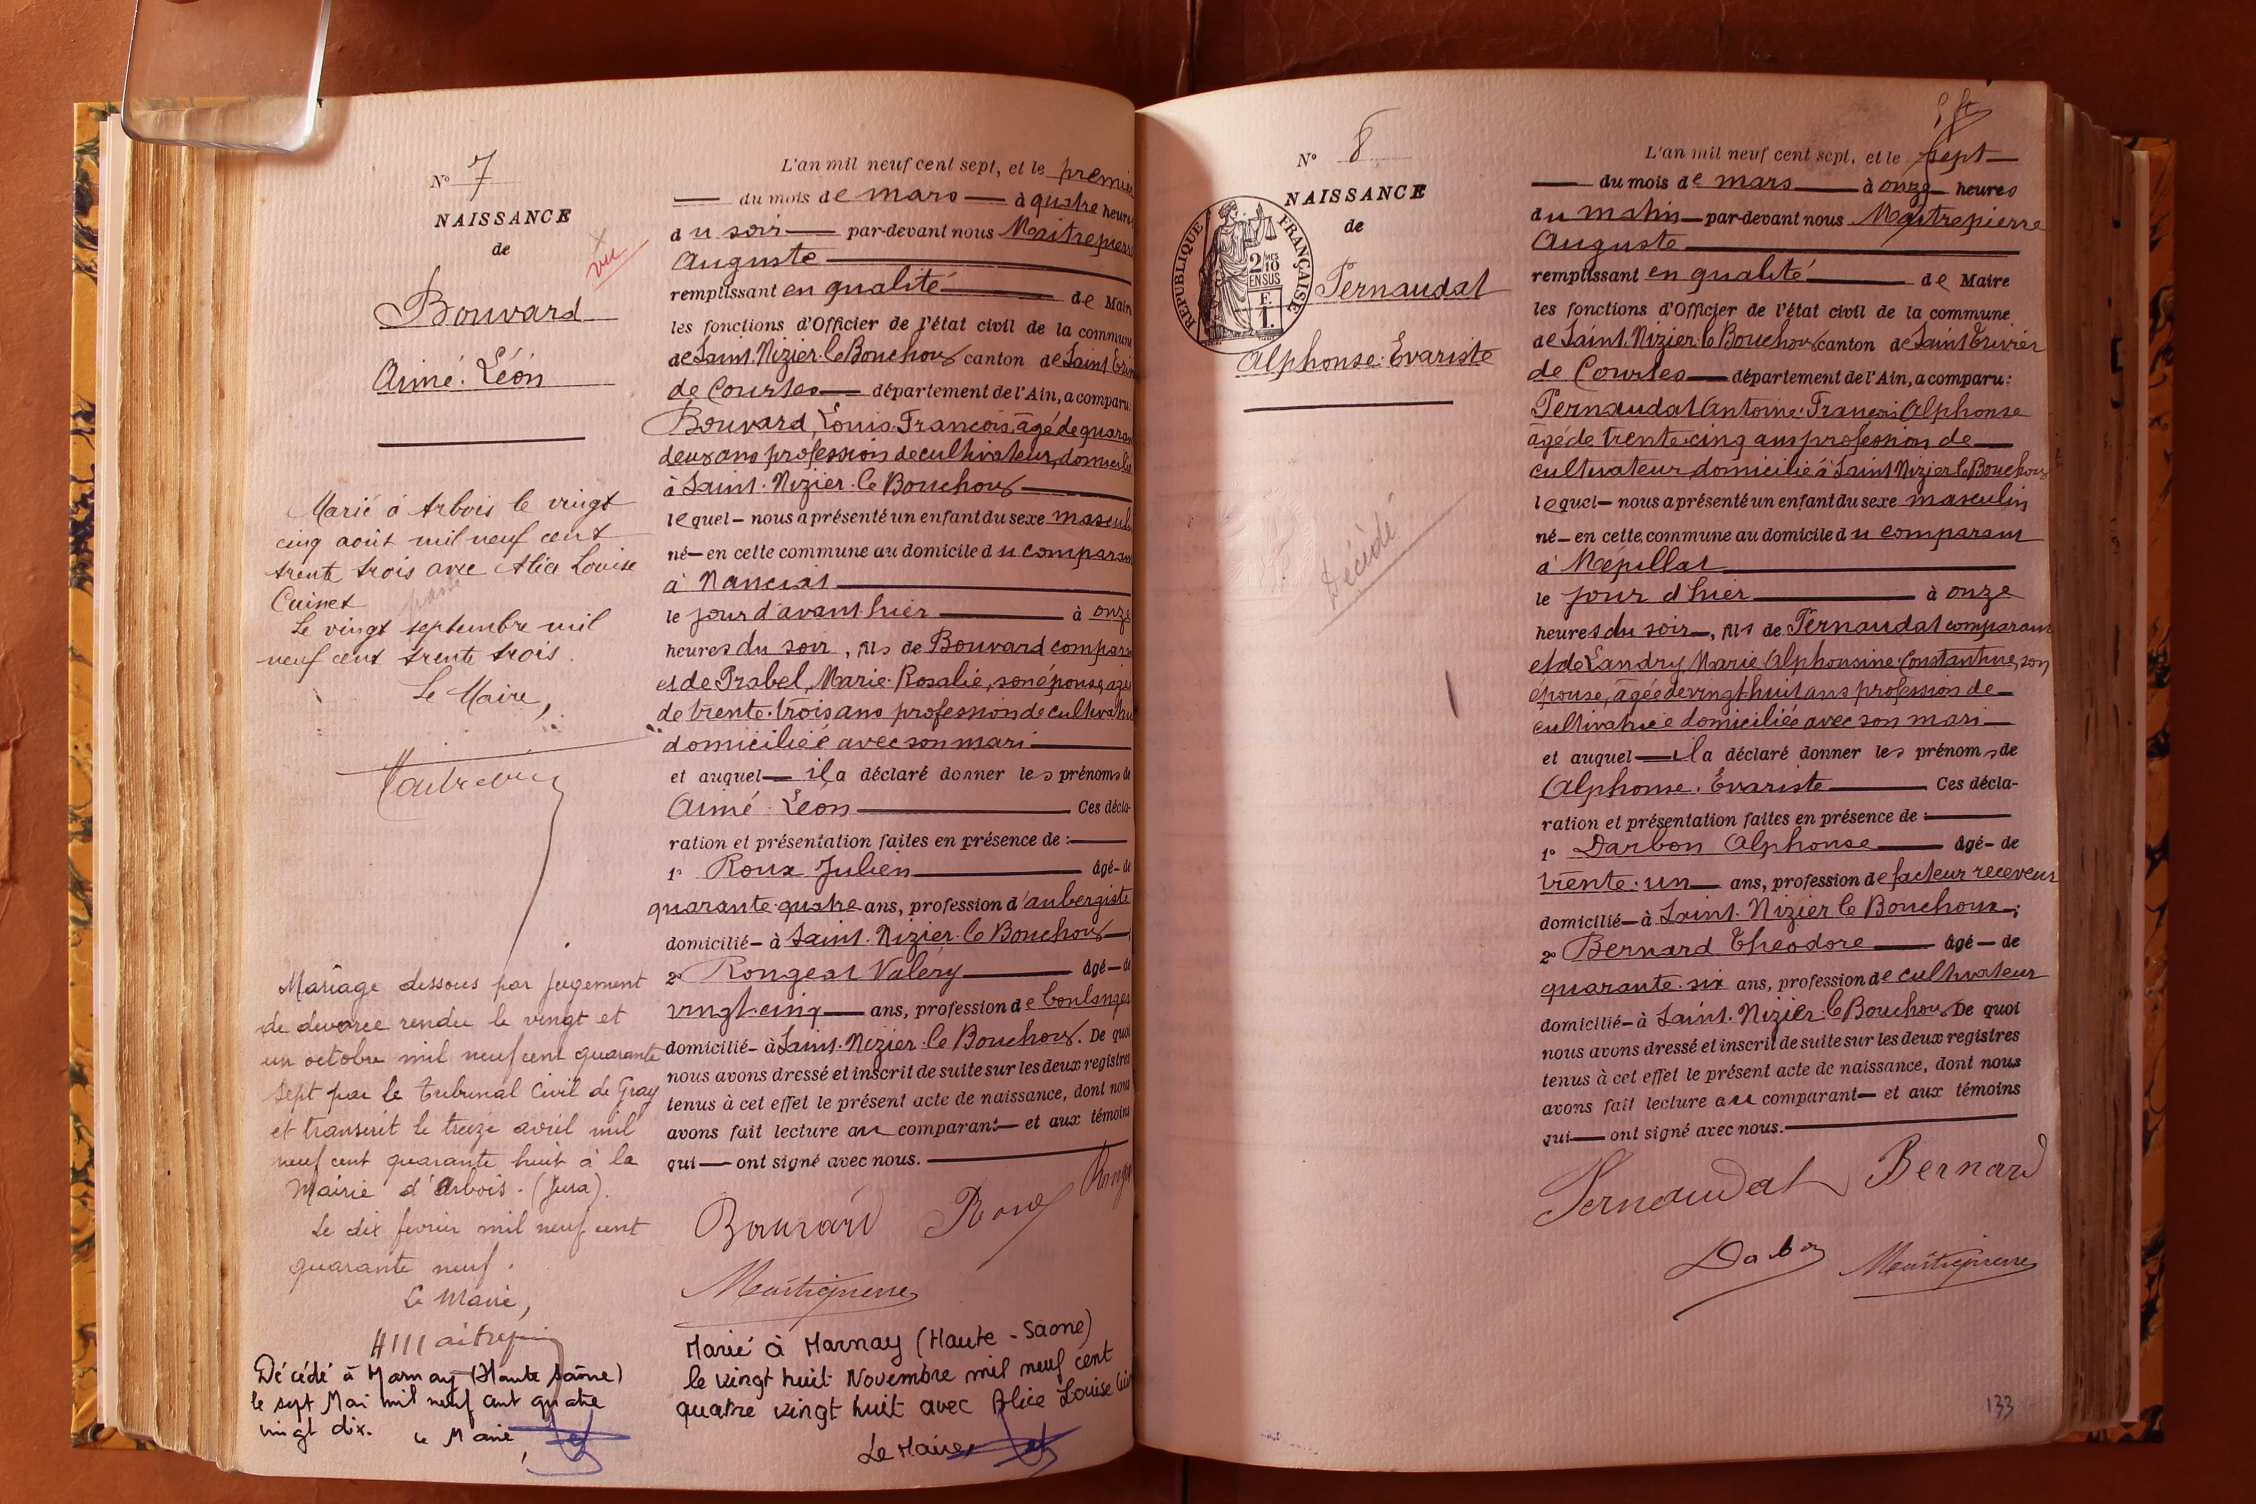 N° 7
NAISSANCE
de
Bouvard
Aimé. Léon
vu
Marié à Arbois le vingt
cinq août mil neuf cent
trente trois avec Alice Louise
Cuinet
Le vingt septembre mil
neuf cent trente trois.
Le Maire,
Mariage dissous par jugement
de divorce rendu le vingt et
un octobre mil neuf cent quarante
sept par le Tribunal Civil de Gray
et transcrit le treize avril mil
neuf cent quarante huit à la
Mairie d'Arbois. (Jura).
Le dix février mil neuf cent
quarante neuf.
Le Maire,
Décédé à Marnay (Haute Saône)
le sept Mai mil neuf cent quatre
vingt dix. Le Maire,
L'an mil neuf cent sept, et le premier
du mois de mars à quatre heures
du soir par-devant nous Maitrepierre
Auguste
remplissant en qualité de Maire
les fonctions d'Officier de l'état civil de la commune
de Saint. Nizier. le Bouchoux canton de Saint Trivier
de Courtes département de l'Ain, a comparu:
Bouvard, Louis. François, âgé de quarante
deux ans profession de cultivateur, domicilié
à Saint. Nizier. le Bouchoux
lequel nous a présenté un enfant du sexe masculin
né en cette commune au domicile du comparant
à Nanciat
le jour d'avant hier à onze
heures du soir, fils de Bouvard comparant
et de Prabel, Marie. Rosalie, son épouse, âgée
de trente. trois ans profession de cultivatrice
domiciliée avec son mari
et auquel il a déclaré donner les prénoms de
Aimé. Léon Ces décla-
ration et présentation faites en présence de :
1° Roux Julien âgé de
quarante. quatre ans, profession d'aubergiste
domicilié à Saint. Nizier. le Bouchoux
2° Rongeat Valéry âgé de
vingt. cinq ans, profession de boulanger
domicilié à Saint. Nizier. le Bouchoux. De quoi
nous avons dressé et inscrit de suite sur les deux registres
tenus à cet effet le présent acte de naissance, dont nous
avons fait lecture au comparant et aux témoins
qui ont signé avec nous.
Bouvard Roux
Maitrepierre
Marié à Marnay (Haute-Saône)
le vingt huit Novembre mil neuf cent
quatre vingt huit avec Alice Louise
Le Maire
N° 8
NAISSANCE
de
RÉPUBLIQUE FRANÇAISE
2/10MES
EN SUS
Pernaudat
Alphonse. Évariste
Décédé
L'an mil neuf cent sept, et le sept
du mois de mars à onze heures
du matin par-devant nous Maitrepierre
Auguste
remplissant en qualité de Maire
les fonctions d'Officier de l'état civil de la commune
de Saint. Nizier. le Bouchoux canton de Saint Trivier
de Courtes département de l'Ain, a comparu:
Pernaudat Antoine. François Alphonse
âgé de trente. cinq ans profession de
cultivateur domicilié à Saint Nizier le Bouchoux
lequel nous a présenté un enfant du sexe masculin
né en cette commune au domicile du comparant
à Mépillat
le jour d'hier à onze
heures du soir, fils de Pernaudat comparant
et de Landry, Marie Alphonsine Constantine, son
épouse, âgée de vingt. huit ans profession de
cultivatrice domiciliée avec son mari
et auquel il a déclaré donner les prénoms de
Alphonse. Évariste Ces décla-
ration et présentation faites en présence de :
1° Darbon Alphonse âgé de
trente. un ans, profession de facteur receveur
domicilié à Saint. Nizier le Bouchoux;
2° Bernard Théodore âgé de
quarante. six ans, profession de cultivateur
domicilié à Saint. Nizier. le Bouchoux De quoi
nous avons dressé et inscrit de suite sur les deux registres
tenus à cet effet le présent acte de naissance, dont nous
avons fait lecture au comparant et aux témoins
qui ont signé avec nous.
Pernaudat Bernard
Maitrepierre
133